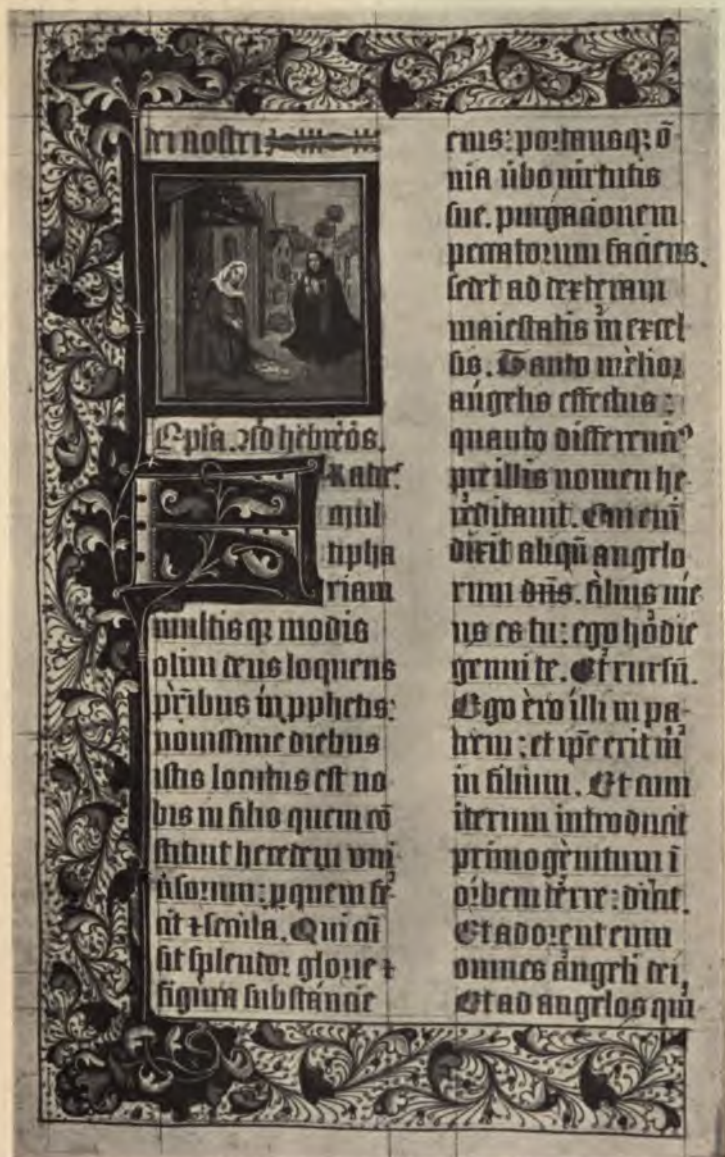 dei nostri.
Ep̄la. ad hebreos.
Fratreˢ
mul
tipha
riam
multisqꝫ modis
olim deus loquens
p̄ribus in ꝓphetis:
nouissime diebus
istis locutus est no
bis in filio quem cō
stituit heredem vni
ūsorum: ꝑ quem fe
cit ⁊ secula. Qui cū
sit splendor glorie ⁊
figura substancie
eius: portansqꝫ ō
nia ūbo uirtutis
sue. purgacionem
peccatorum faciens.
sedet ad dexteram
maiestatis in excel
sis. Tanto melior
angelis effectus:
quanto differenciꝰ
pre illis nomen he
reditauit. Cui eni
dixit aliqn̄ angelo
rum dn̄s. filius me
us es tu: ego hodie
genui te. Et rursū.
Ego ero illi in pa
trem: et ip̄e erit m̄
in filium. Et cum
iterum introducit
primogenitum ī
orbem terre: dicit.
Et adorent eum
omnes angeli dei,
Et ad angelos qui